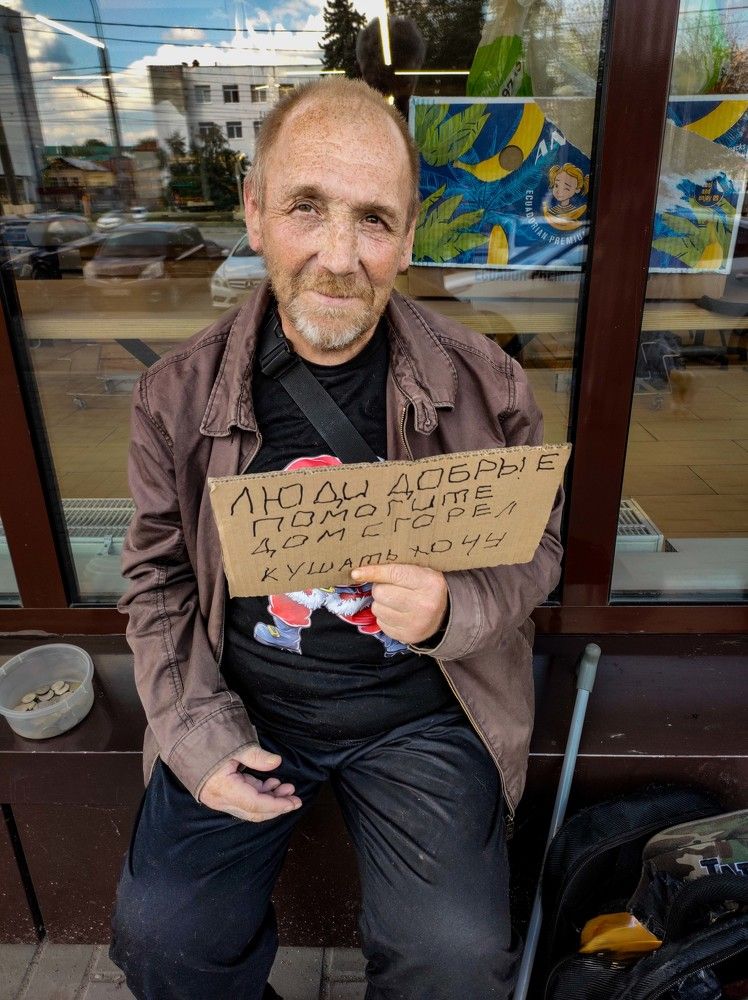 ЛЮДИ ДОБРЫЕ
ПОМОГИТЕ
ДОМ СГОРЕЛ
КУШАТЬ ХОЧУ
ECUADORIAN PREMIUM